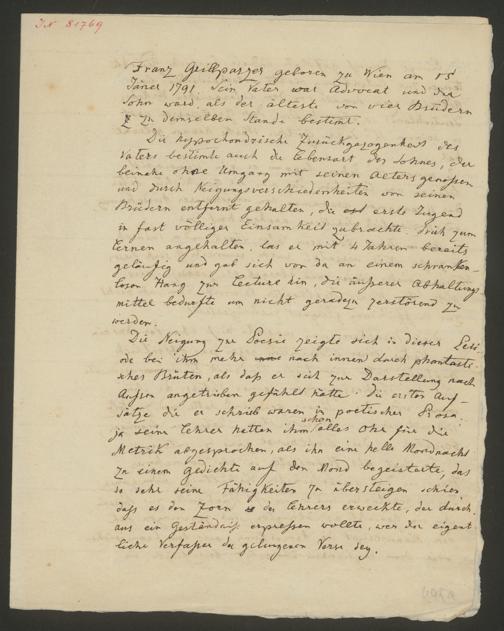 IN 81769
Franz Grillparzer geboren zu Wien am 15
Jäner 1791. Sein Vater war Advocat und der
Sohn ward, als der älteste von vier Brüdern
zu demselben Stande bestimt.
Die hypochondrische Zurückgezogenheit des
Vaters bestimte auch die Lebensart des Sohnes, der
beinahe ohne Umgang mit seinen Altersgenossen
und durch Neigungsverschiedenheiten von seinen
Brüdern entfernt gehalten, die erste Jugend
in fast völliger Einsamkeit zubrachte. Früh zum
Lernen angehalten, las er mit 4 Jahren bereits
geläufig und gab sich von da an einem schranken-
losen Hang zur Lecture hin, die äußerer Abhaltungs
mittel bedurfte um nicht geradezu zerstörend zu
werden.
Die Neigung zur Poesie zeigte sich in dieser Peri-
ode bei ihm mehr nach innen durch phantasti-
sches Brüten, als daß er sich zur Darstellung nach
Außen angetrieben gefühlt hätte. Die ersten Auf-
sätze die er schrieb waren in poetischer Prosa.
ja seine Lehrer hatten ihm schon alles Ohr für die
Metrik abgesprochen, als ihn eine helle Mondnacht
zu einem Gedichte auf den Mond begeisterte, das
so sehr seine Fähigkeiten zu übersteigen schien,
daß es den Zorn des Lehrers erweckte, der durch-
aus ein Geständniß erpressen wollte, wer der eigent
liche Verfasser der gelungenen Verse sey.